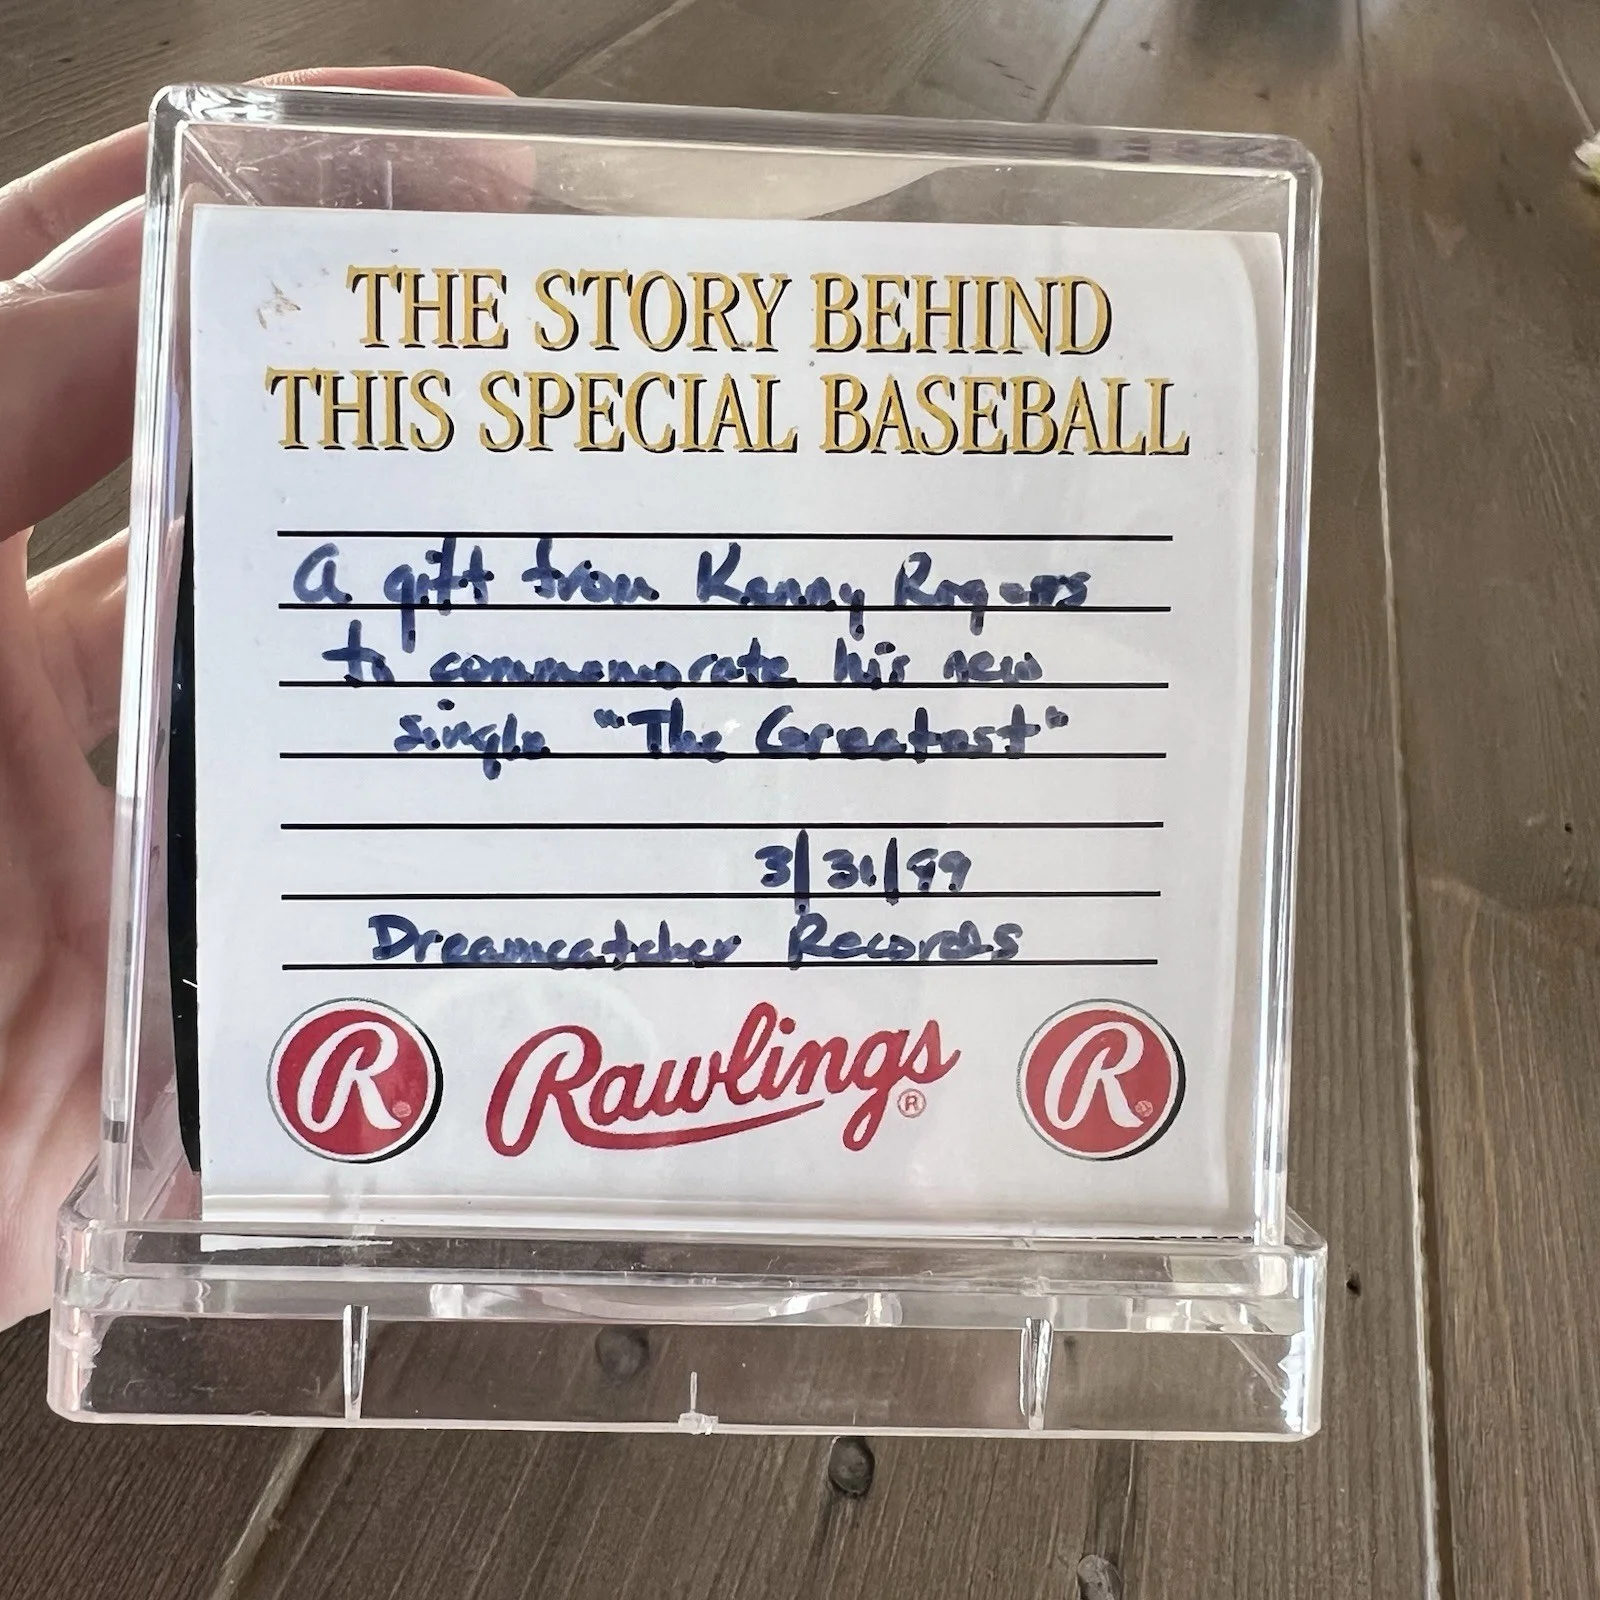 THE STORY BEHIND
THIS SPECIAL BASEBALL
A gift from Kenny Rogers
to commemorate his new
single "The Greatest"
3/31/99
Dreamcatcher Records
R Rawlings® R